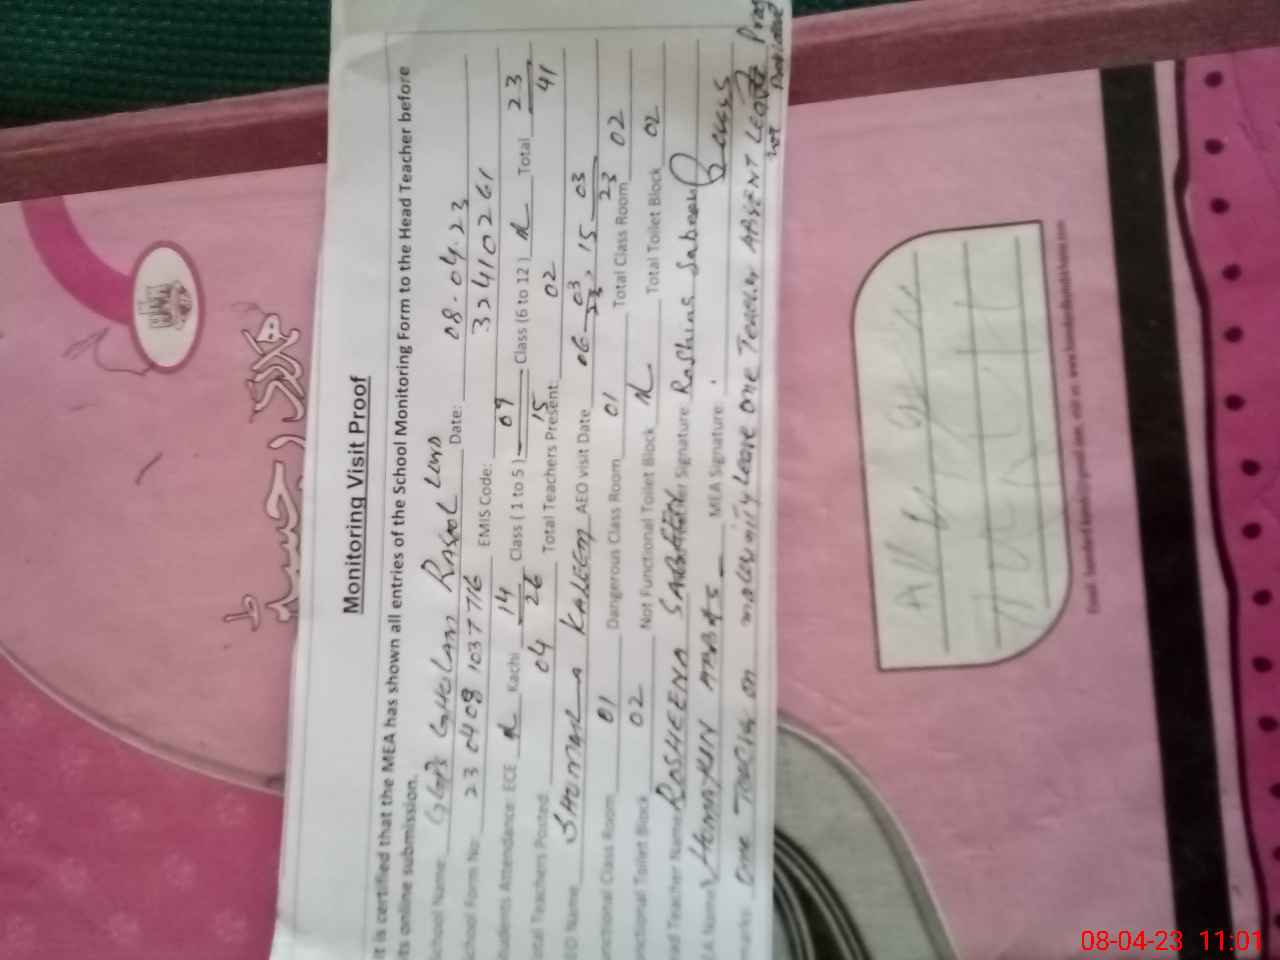 Monitoring Visit Proof
It is certified that the MEA has shown all entries of the School Monitoring Form to the Head Teacher before
its online submission.
School Name: GGPS GHULAM RASOOL LUND Date: 08.04.23
School Form No: 23 0408 1037716 EMIS Code: 32410261
Students Attendance: ECE Kachi 14 26 Class ( 1 to 5 ) 09 15 Class (6 to 12 ) Total 23 41
Total Teachers Posted: 04 Total Teachers Present: 02
AEO Name KALEEM AEO visit Date 06-03-23, 15-03-23
Functional Class Room 01 Dangerous Class Room 01 Total Class Room 02
Functional Toilet Block 02 Not Functional Toilet Block Total Toilet Block 02
Head Teacher Name ROSHEENA SABEEN Teacher Signature Roshina Sabeen
MEA Name HUMAYUN ABBAS MEA Signature:
Remarks: One Teacher on maternity leave one Teacher ABSENT LEAVE
not
رجسٹر
08-04-23 11:01